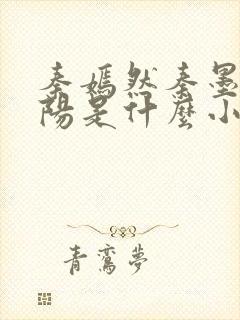 秦嫣然秦墨
陽是什麼小
青鸞夢